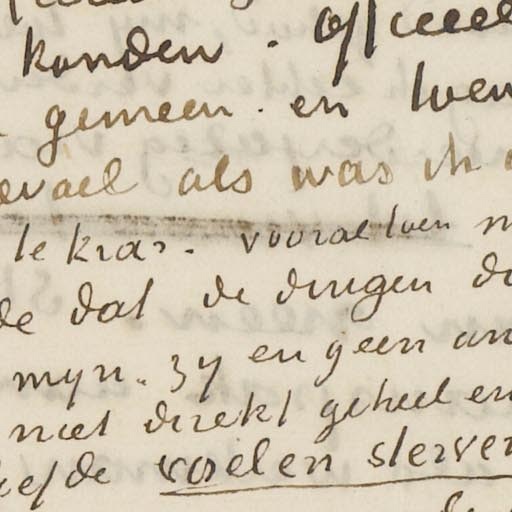 konden. Officieel
gemeen. en toen
evael als was ik
te kras. vooral toen
de dat de dingen
mijn. zij en geen an
niet direkt geheel en
liefde voelen sterven